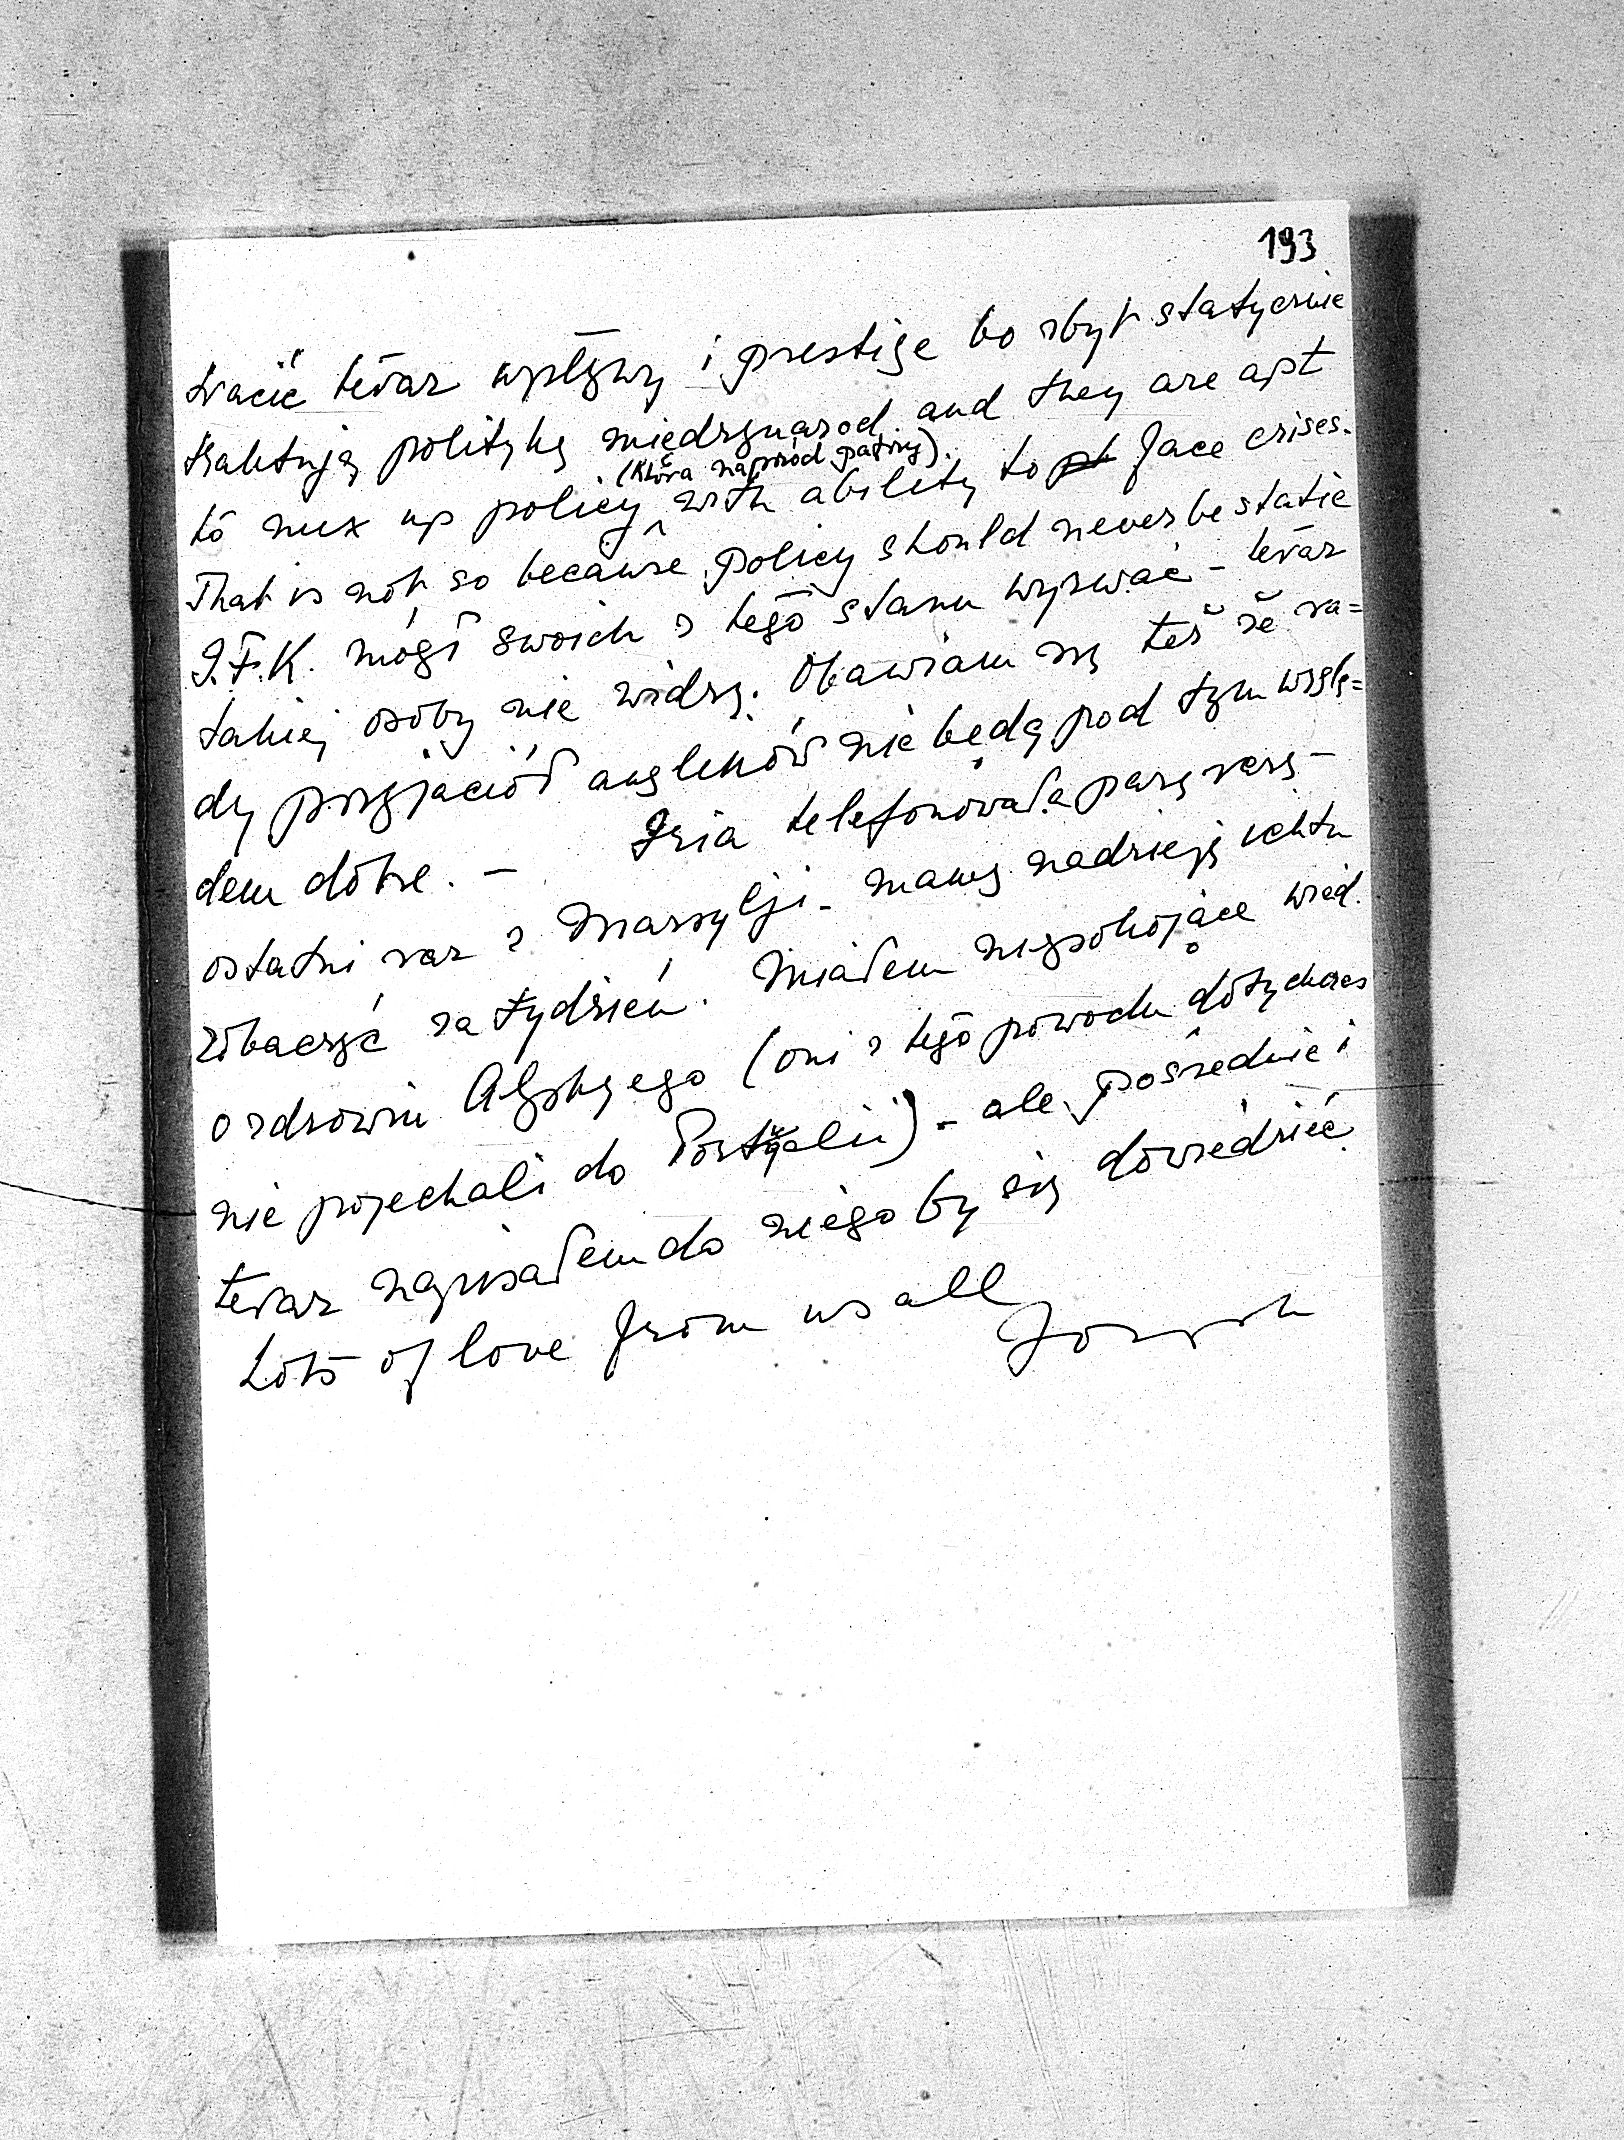 193
tracić teraz wpływy i prestige bo zbyt statycznie
traktują politykę międzynarod. and they are apt
(która naprzód patrzy).
to mix up policy with ability to face crises.
That is not so because policy should never be static
J.F.K. mógł swoich z tego stanu wyrwać - teraz
takiej osoby nie widzę. Obawiam się też że ra=
dy przyjaciół anglików nie będą pod tym wzglę=
dem dobre. - Izia telefonowała parę razy -
ostatni raz z Marsylji - mamy nadzieję ich tu
zobaczyć za tydzień. Miałem niepokojące wiad.
o zdrowiu Alfskyego (oni z tego powodu dotychczas
nie pojechali do Portugalii) - ale pośrednie i
teraz napisałem do niego by się dowiedzieć.
Lots of love from us all
Joseph